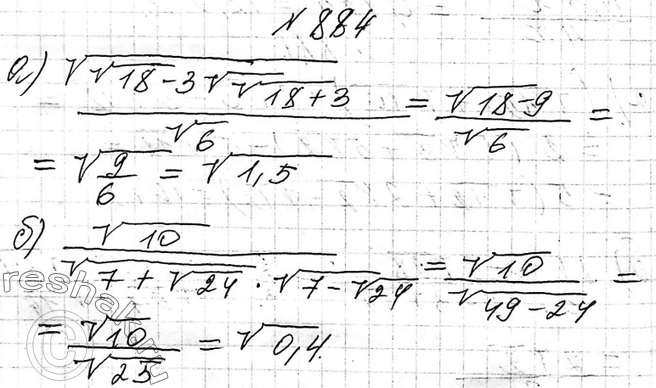 № 884
а) √(√18 - 3) √(√18 + 3) / √6 = √(18 - 9) / √6 =
= √(9/6) = √1,5
б) √10 / (√(7 + √24) · √(7 - √24)) = √10 / √(49 - 24) =
= √10 / √25 = √0,4.
reshak.ru